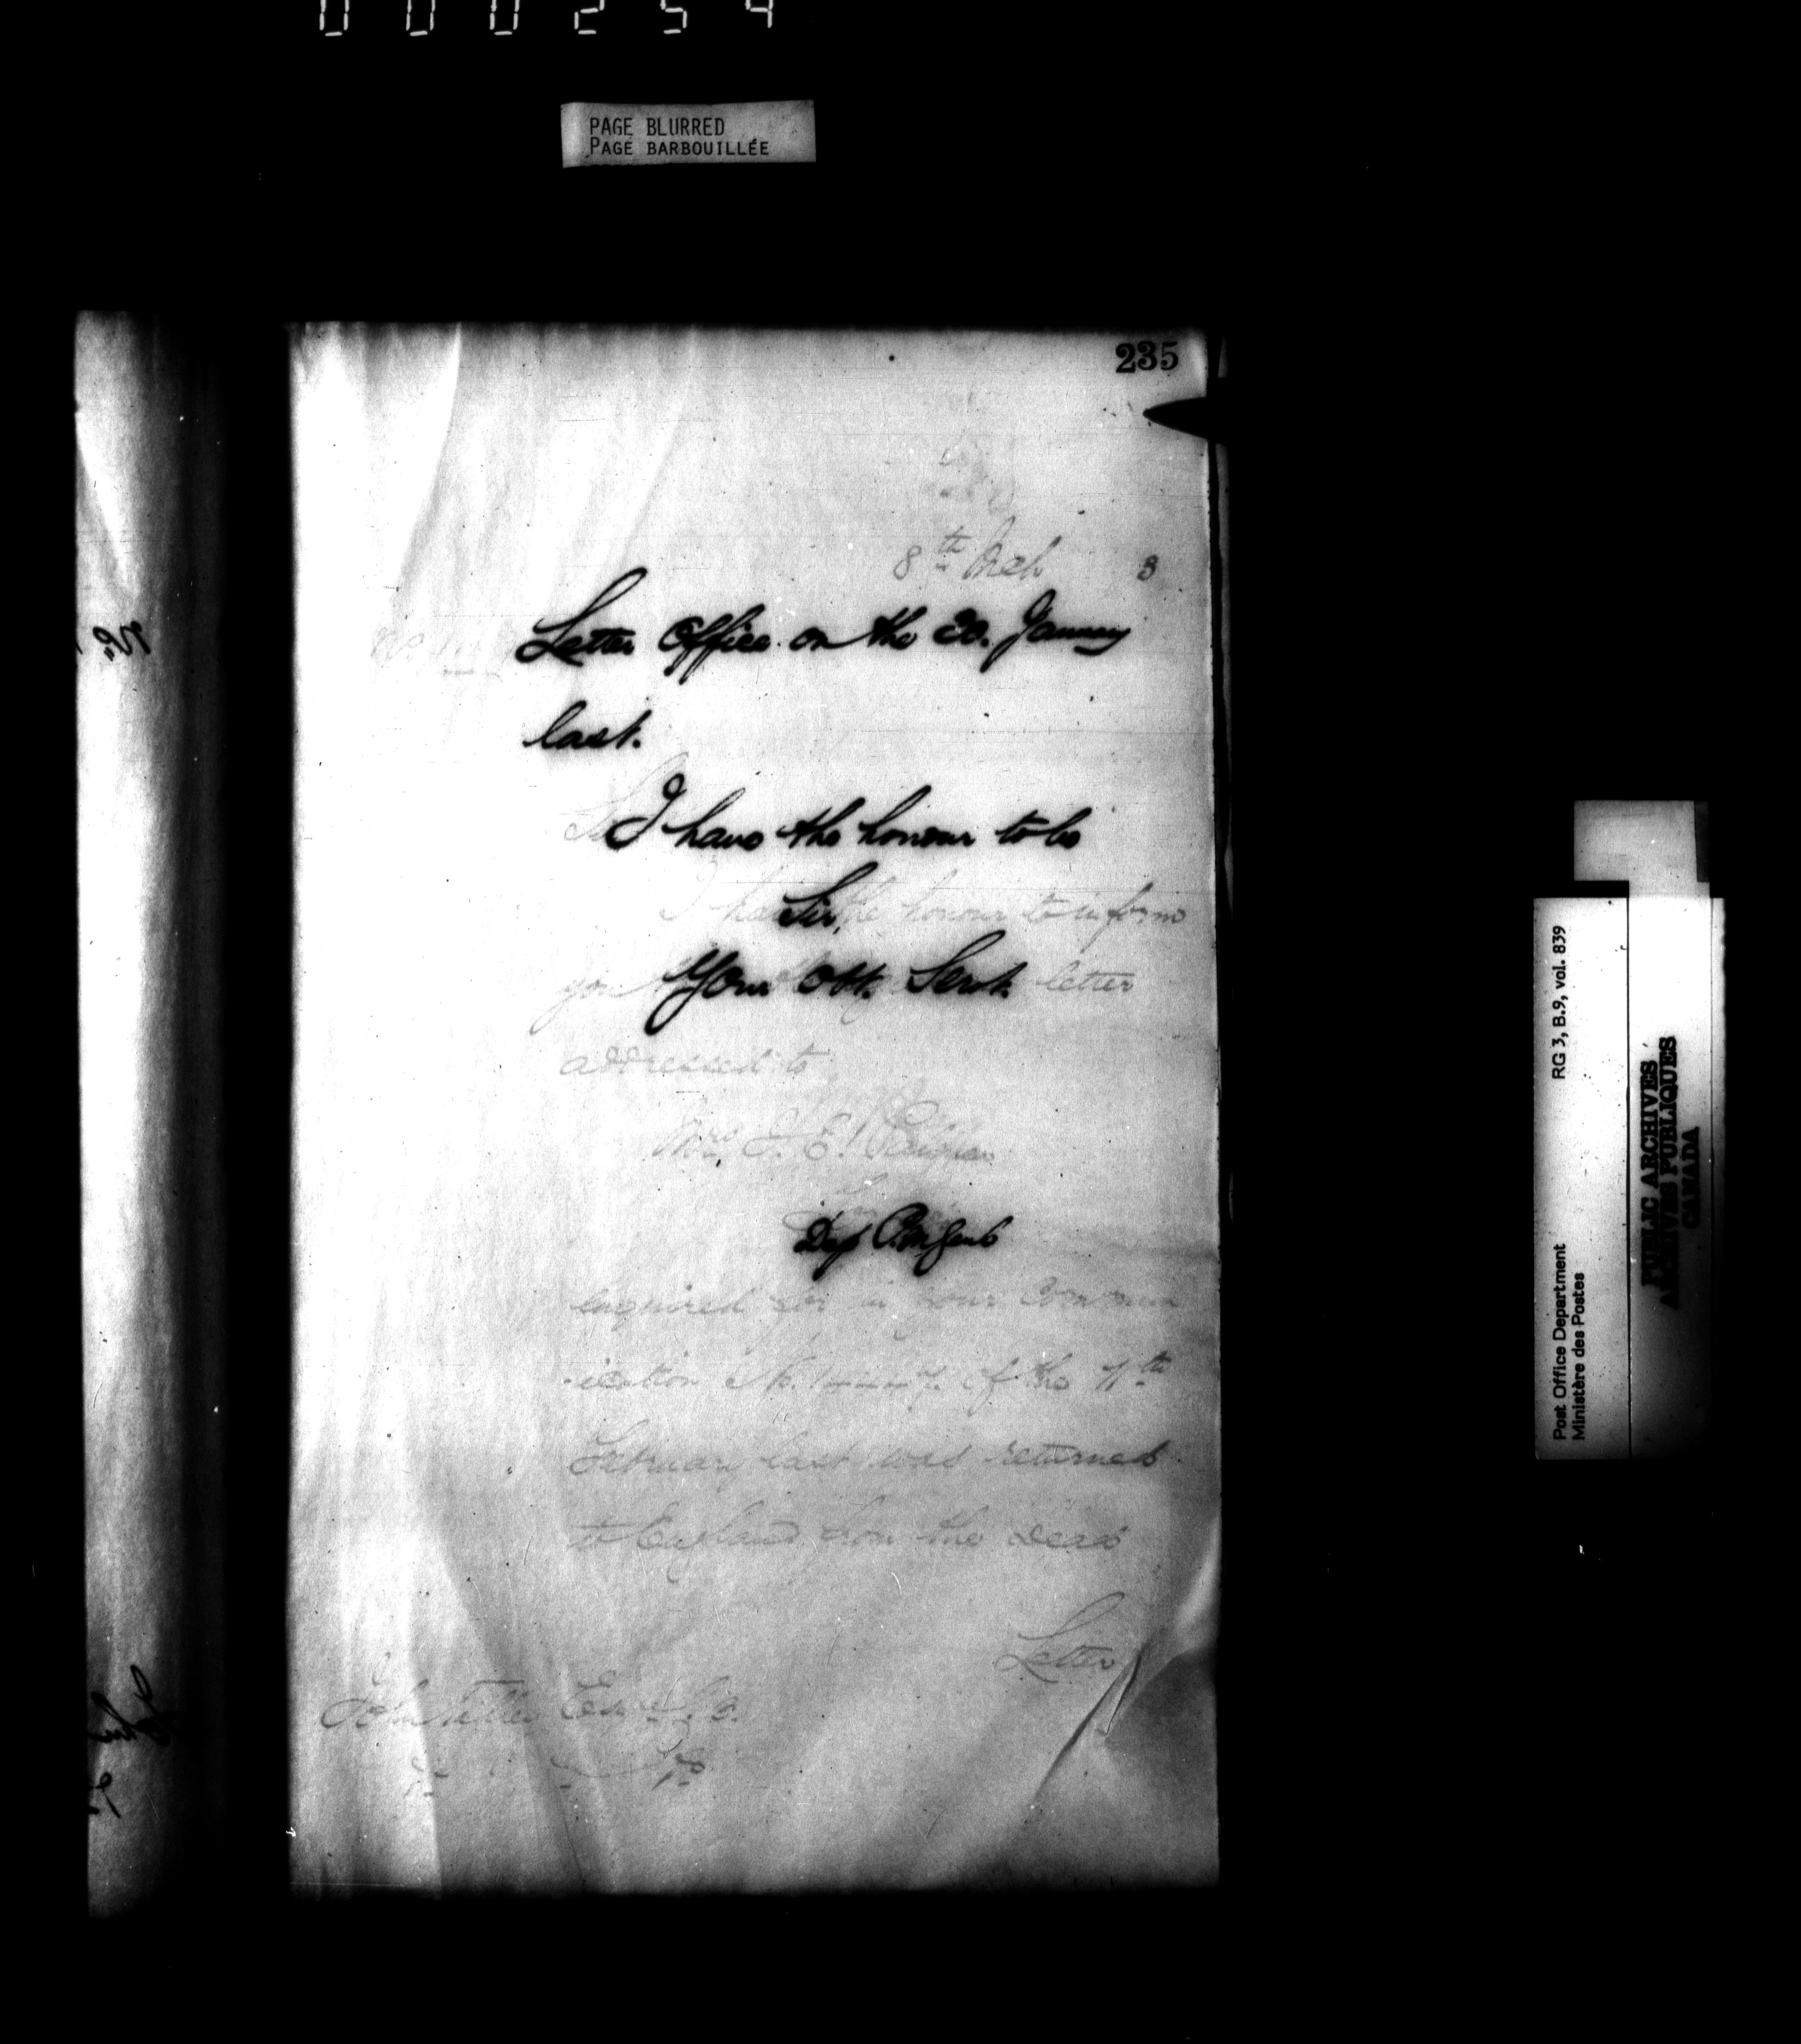 000254
PAGE BLURRED
PAGE BARBOUILLÉE
235
8th Mch 3
Letter Office on the 30. January
last.
I have the honour to be
Sir,
Your Obt. Servt.
Dep P.M. Genl
I have the honour to inform
you letter
addressed to
Mrs. J. E.
enquired for in your commun
ication No. of the 11th
February last was returned
to England from the Dead
Letter
John Tilley Esqre
No.
RG 3, B.9, vol. 839
Post Office Department
Ministère des Postes
PUBLIC ARCHIVES
ARCHIVES PUBLIQUES
CANADA